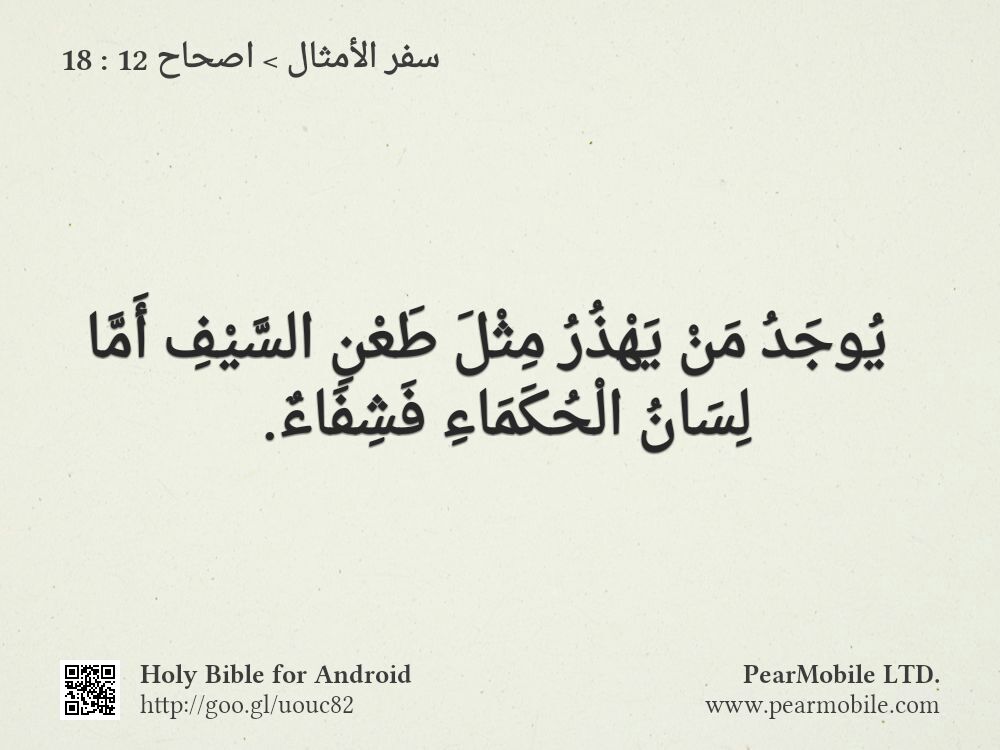 سفر الأمثال > اصحاح 12 : 18
يُوجَدُ مَنْ يَهْذُرُ مِثْلَ طَعْنِ السَّيْفِ أَمَّا
لِسَانُ الْحُكَمَاءِ فَشِفَاءٌ.
Holy Bible for Android
http://goo.gl/uouc82
PearMobile LTD.
www.pearmobile.com